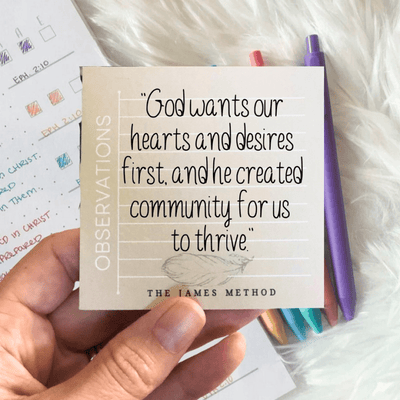 "God wants our
hearts and desires
first, and he created
community for us
to thrive."
OBSERVATIONS
THE JAMES METHOD
EPH 2:10
EPH. 2:10
CHRIST.
IN THEM.
IN CHRIST
PREPARED